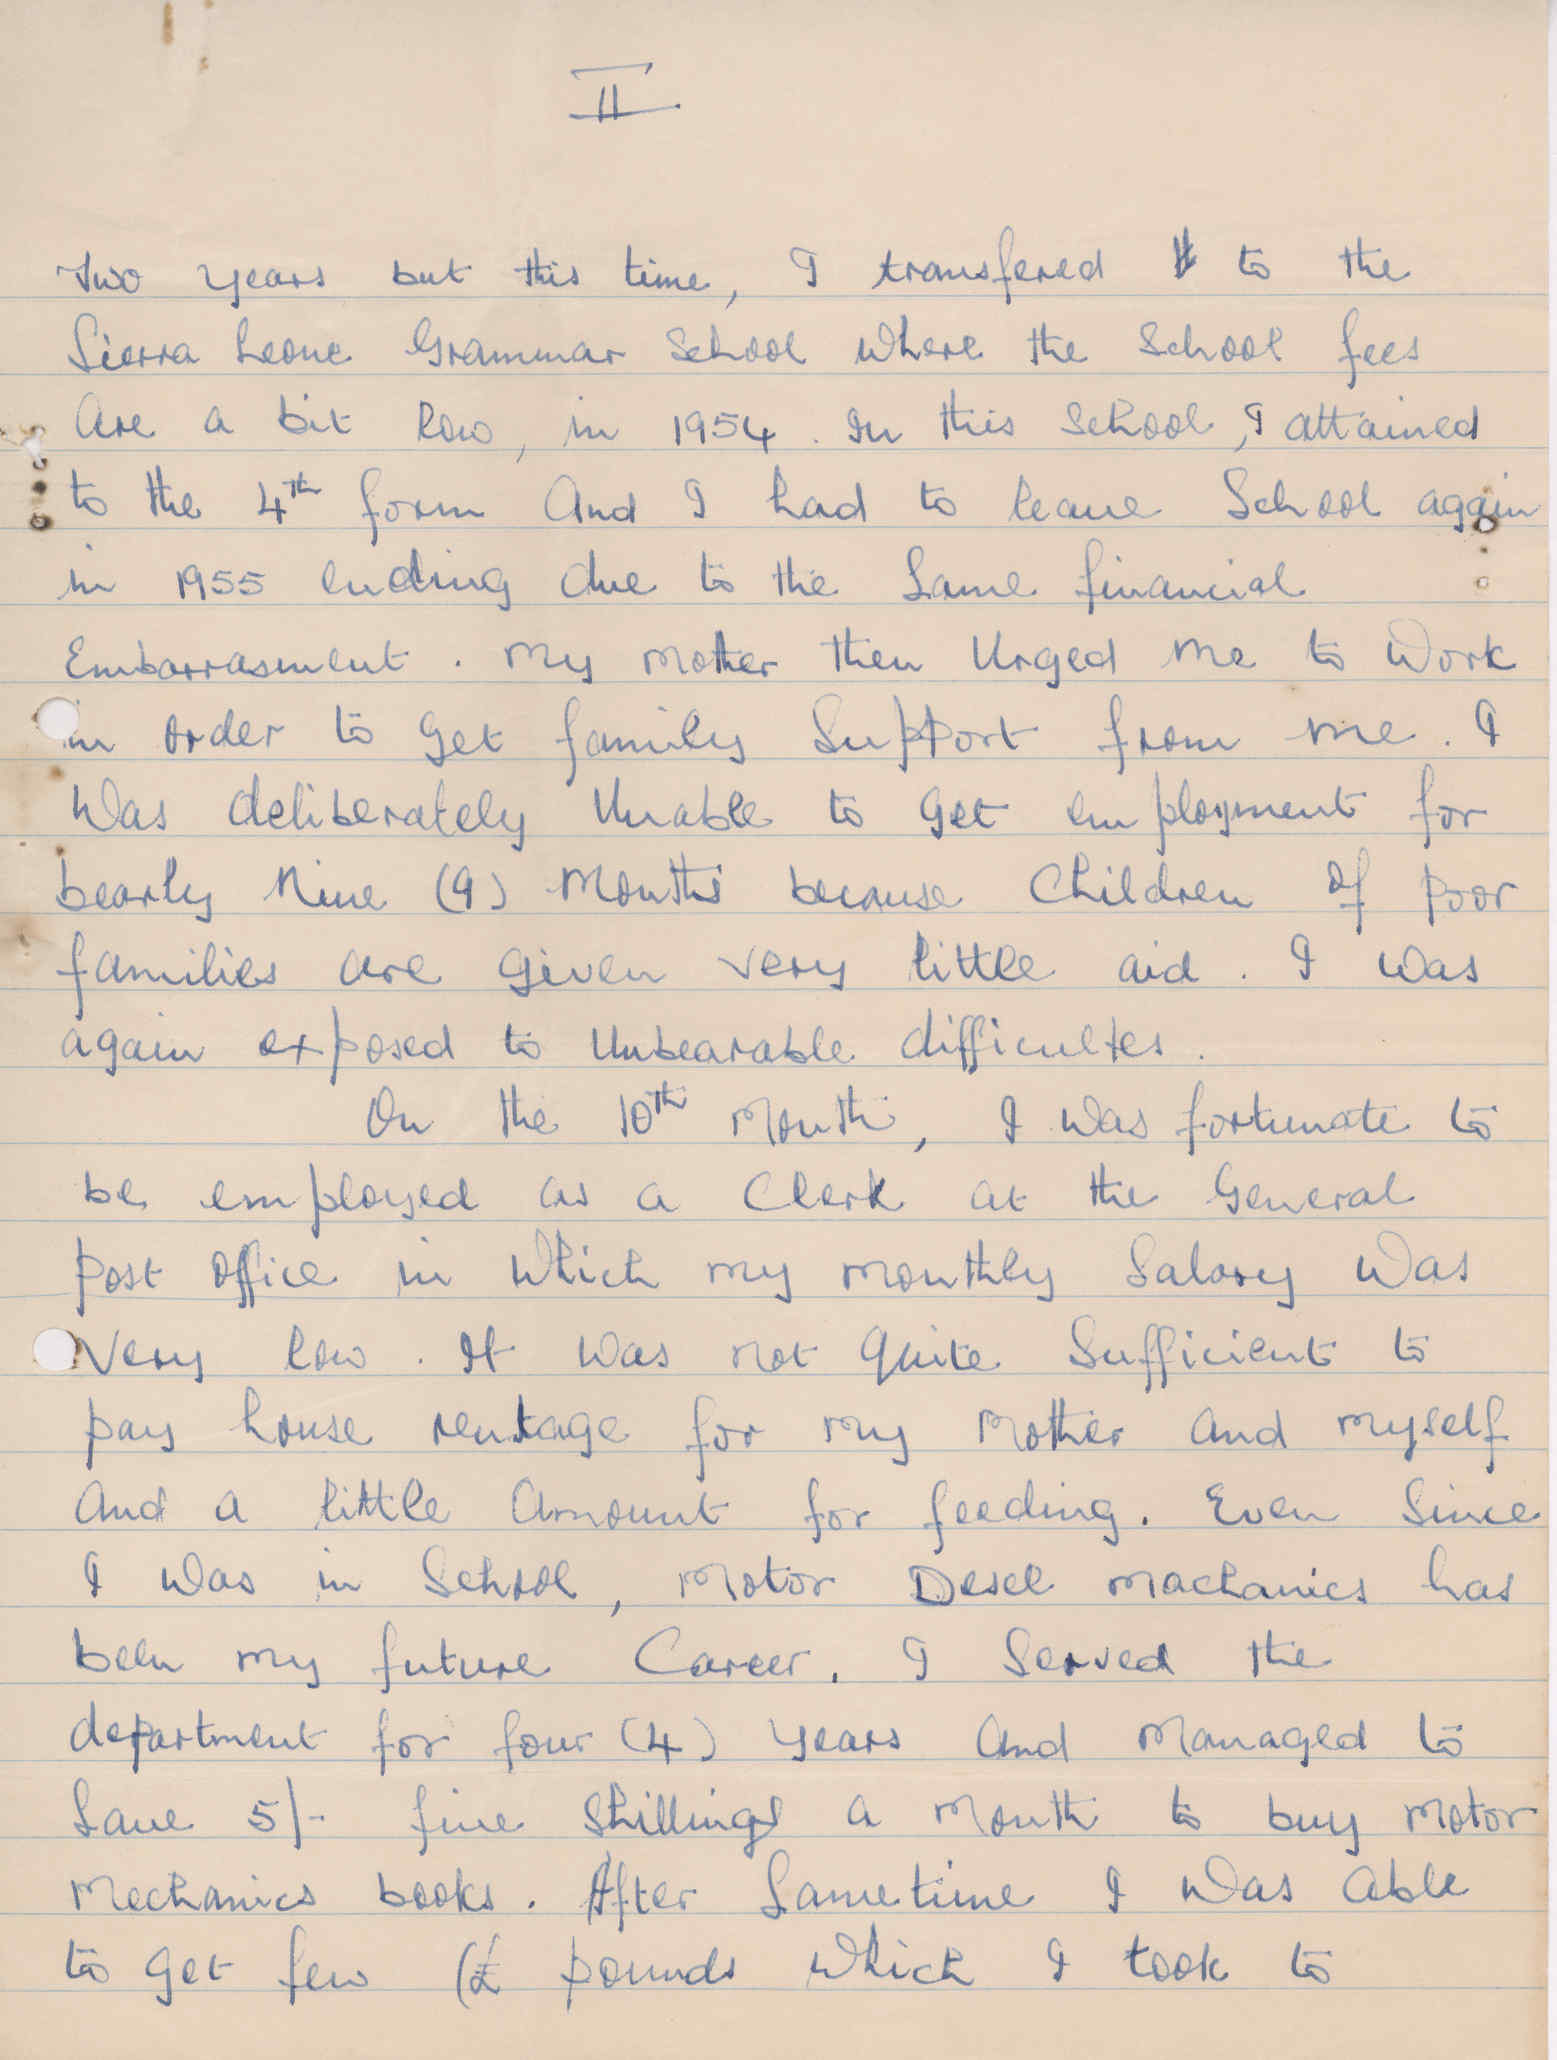 II
Two years but this time, I transfered to the
Sierra Leone Grammar School where the School fees
are a bit low, in 1954. In this School, I attained
to the 4th form And I had to leave School again
in 1955 ending due to the Same financial
Embarrasment. My Mother then Urged Me to Work
in order to get family Support from me. I
Was deliberately Unable to get employment for
bearly Nine (9) Months because Children of poor
families are given very little aid. I was
again exposed to Unbearable difficultes.
On the 10th Month, I was fortunate to
be employed as a Clerk at the General
post office in which my monthly Salary was
very low. It was not quite Sufficient to
pay house rentage for my Mother and myself
And a little Amount for feeding. Even Since
I was in School, Motor Desel Machanics has
been my future Career. I Served the
department for four (4) years and Managed to
Save 5/- five Shillings a Month to buy Motor
Mechanics books. After Sametime I was able
to get few (£ pounds which I took to